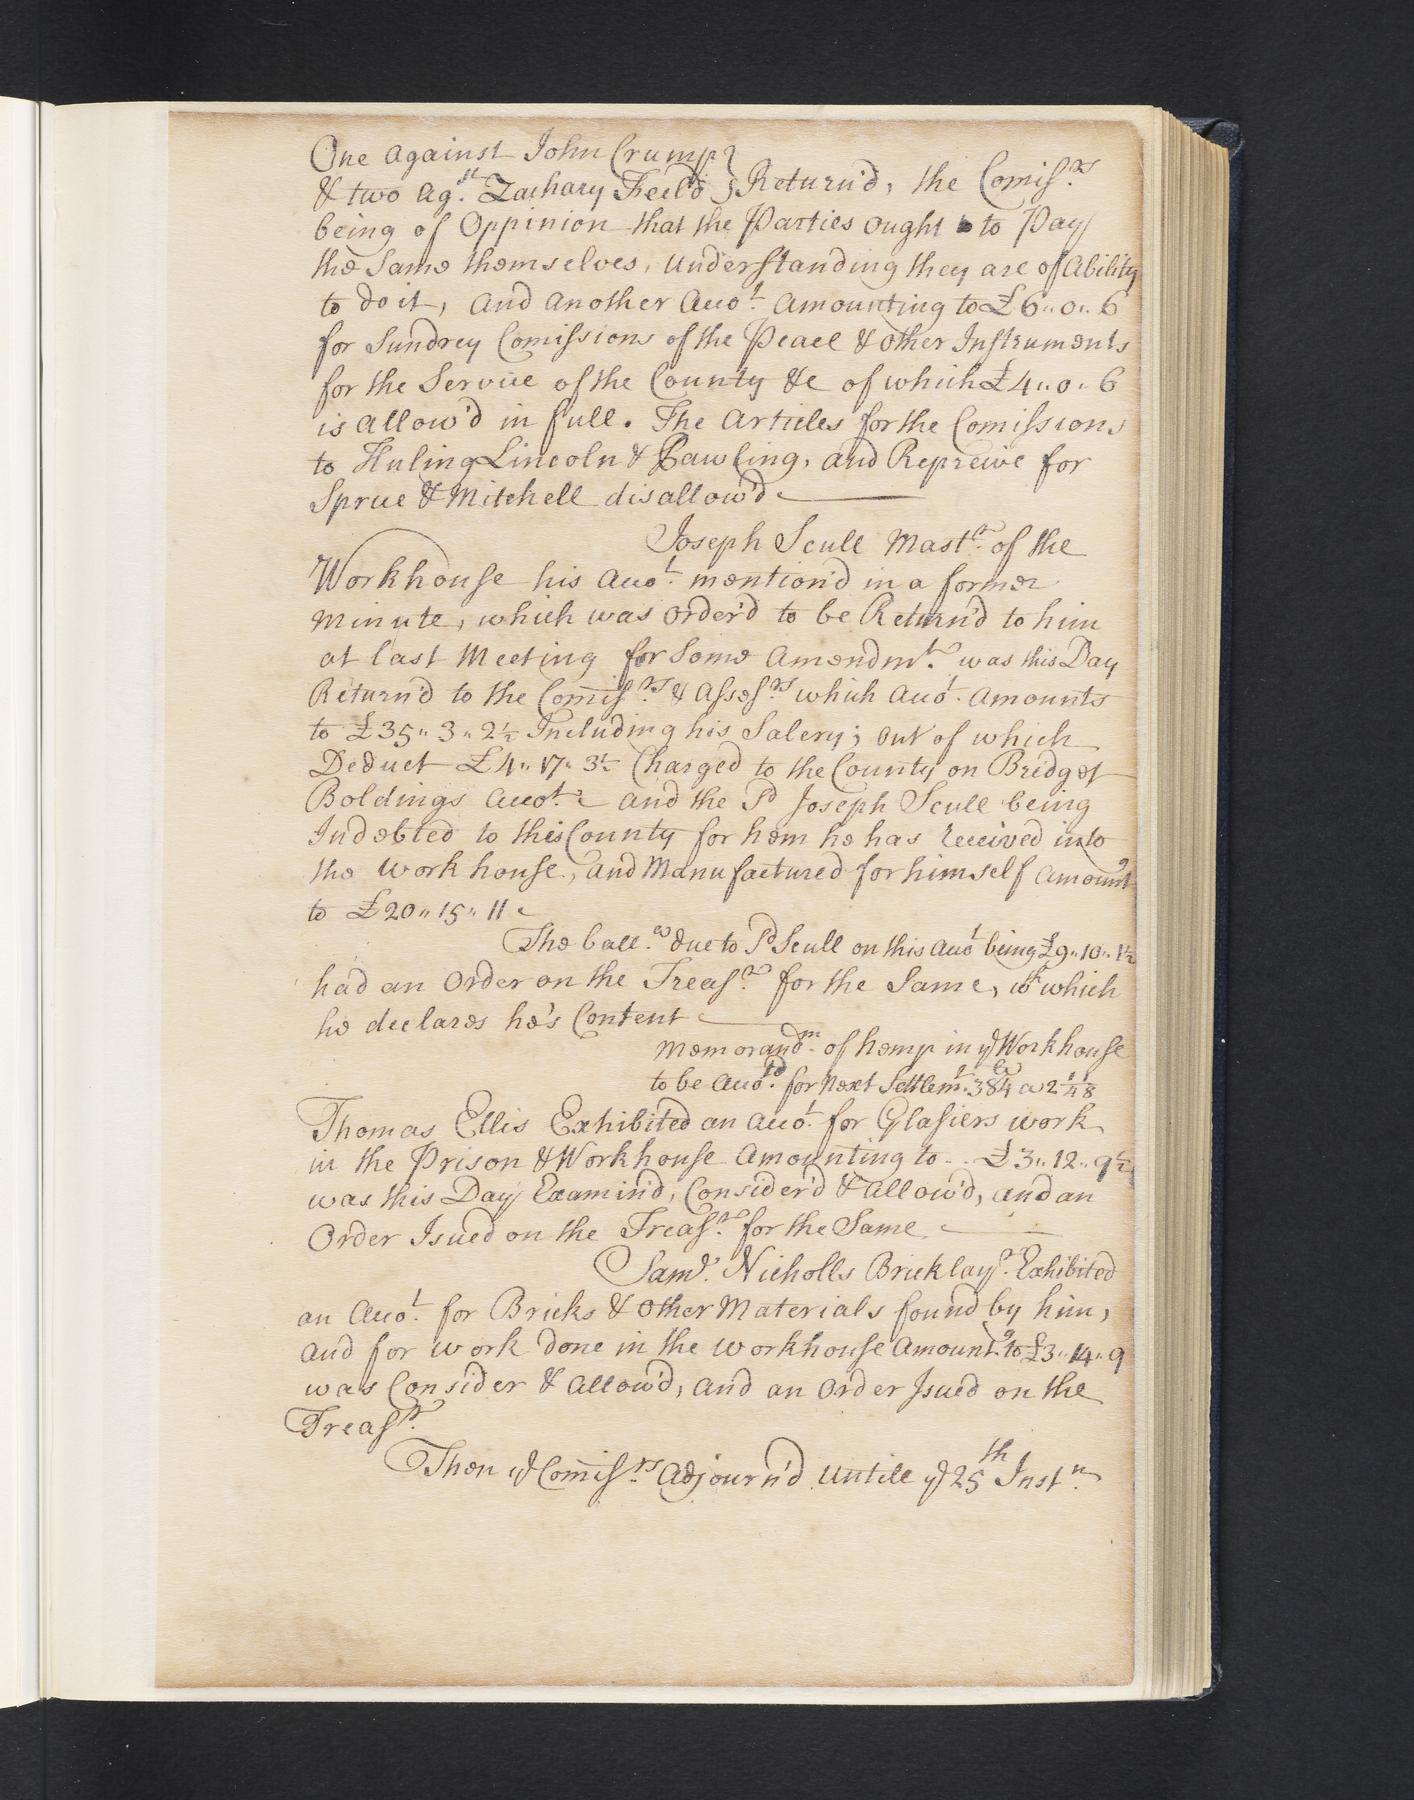 One against John Crump }
& two ag.st Zachary Feeld } Return'd, the Comiſ.rs
being of Oppinion that the Parties ought to Pay
the Same themselves, Underſtanding they are of Ability
to do it, and another Acco.t amounting to £6,,0,,6
for Sundrey Comiſsions of the Peace & other Inſtruments
for the Service of the County &c of which £4,,0,,6
is allow'd in full. The articles for the Comiſsions
to Huling Lincoln & Pawling, and Repreive for
Sprue & Mitchell disallow'd
Joseph Scull Mast.r of the
Workhouſe his Acco.t mention'd in a former
minute, which was order'd to be Return'd to him
at last Meeting for Some amendm.t was this Day
Return'd to the Comiſ.rs & aſseſ.rs which Acco.t amounts
to £35,,3,,2½ Including his Salery; out of which
Deduct £4,,17,,3½ Charged to the County on Bridget
Boldings Acco.t and the Sd Joseph Scull being
Indebted to this County for hem he has received into
the workhouſe, and Manufactured for himself amount
to £20,,15,,11
The ball.ce due to Sd Scull on this Acco.t being £9,,10,,1½
had an Order on the Treaſ.r for the Same, wth which
he declares he's Content
Memorand.m of hemp in ye Workhouſe
to be Acco.td for next Settlem.t 384 lb a 2¼
Thomas Ellis Exhibited an Acco.t for Glaſiers work
in the Prison & Workhouſe amounting to - - £3,,12,,9½
was this Day Examin'd, Consider'd & allow'd, and an
Order Isued on the Treaſ.r for the Same
Sam.l Nicholls Bricklay.r Exhibited
an Acco.t for Bricks & other Materials found by him,
and for work done in the workhouſe amount.g to £3,,14,,9
was Consider & allow'd, and an order Isued on the
Treaſ.r
Then ye Comiſ.rs adjourn'd untill ye 25th Inst.n